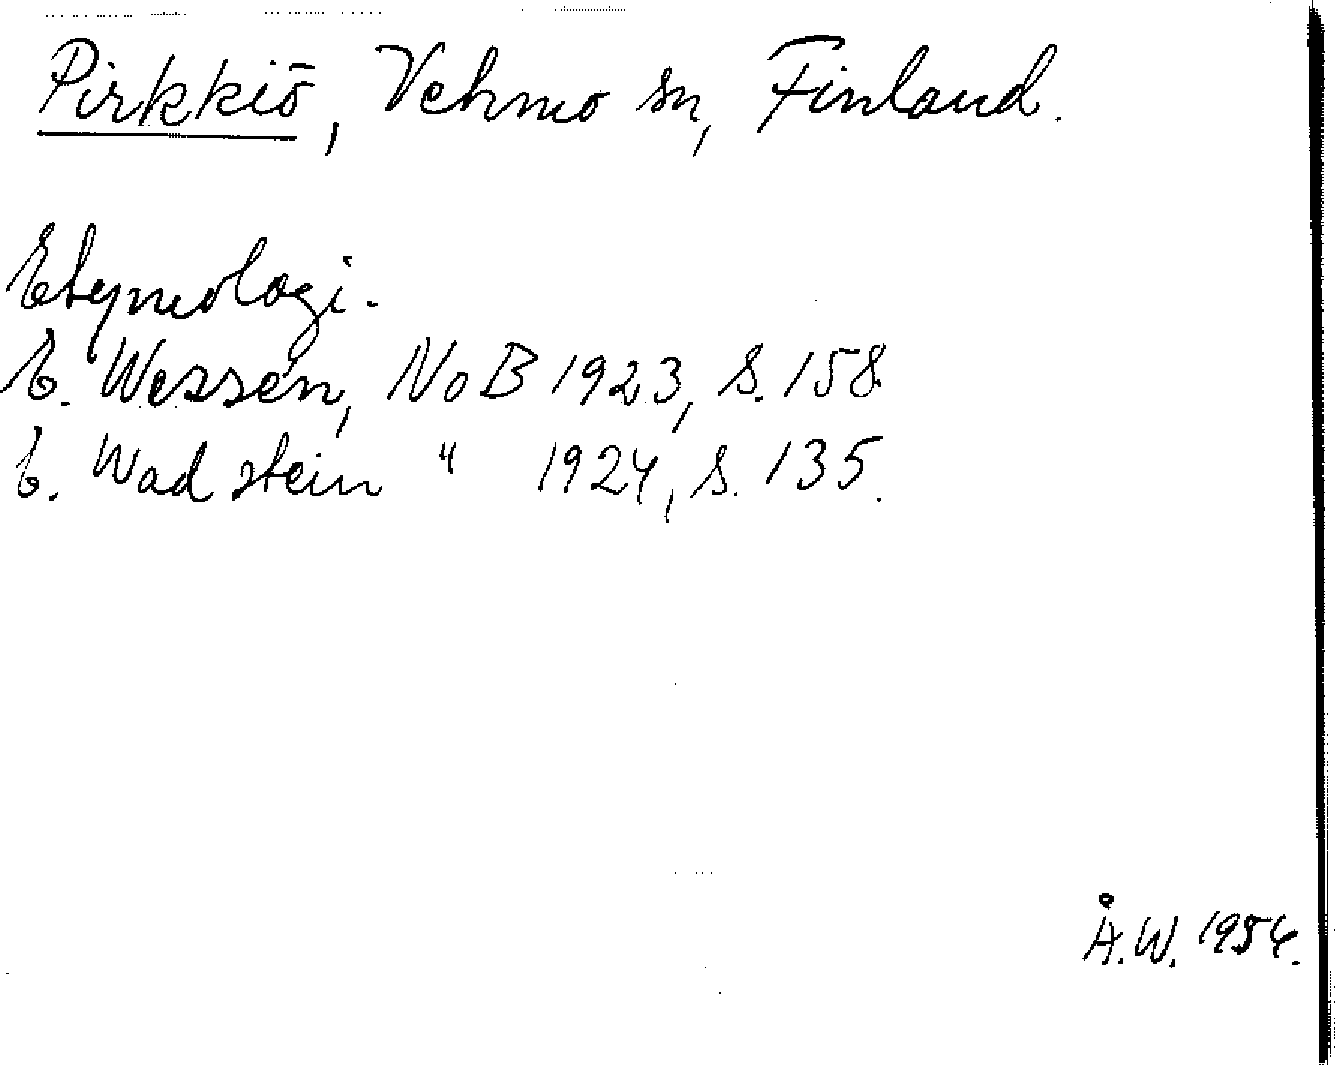 Pirkkiö, Vehmo sn, Finland.
Etymologi.
E. Wessén, NoB 1923, s. 158
E. Wadstein " 1924, s. 135.
Å.W. 1954.